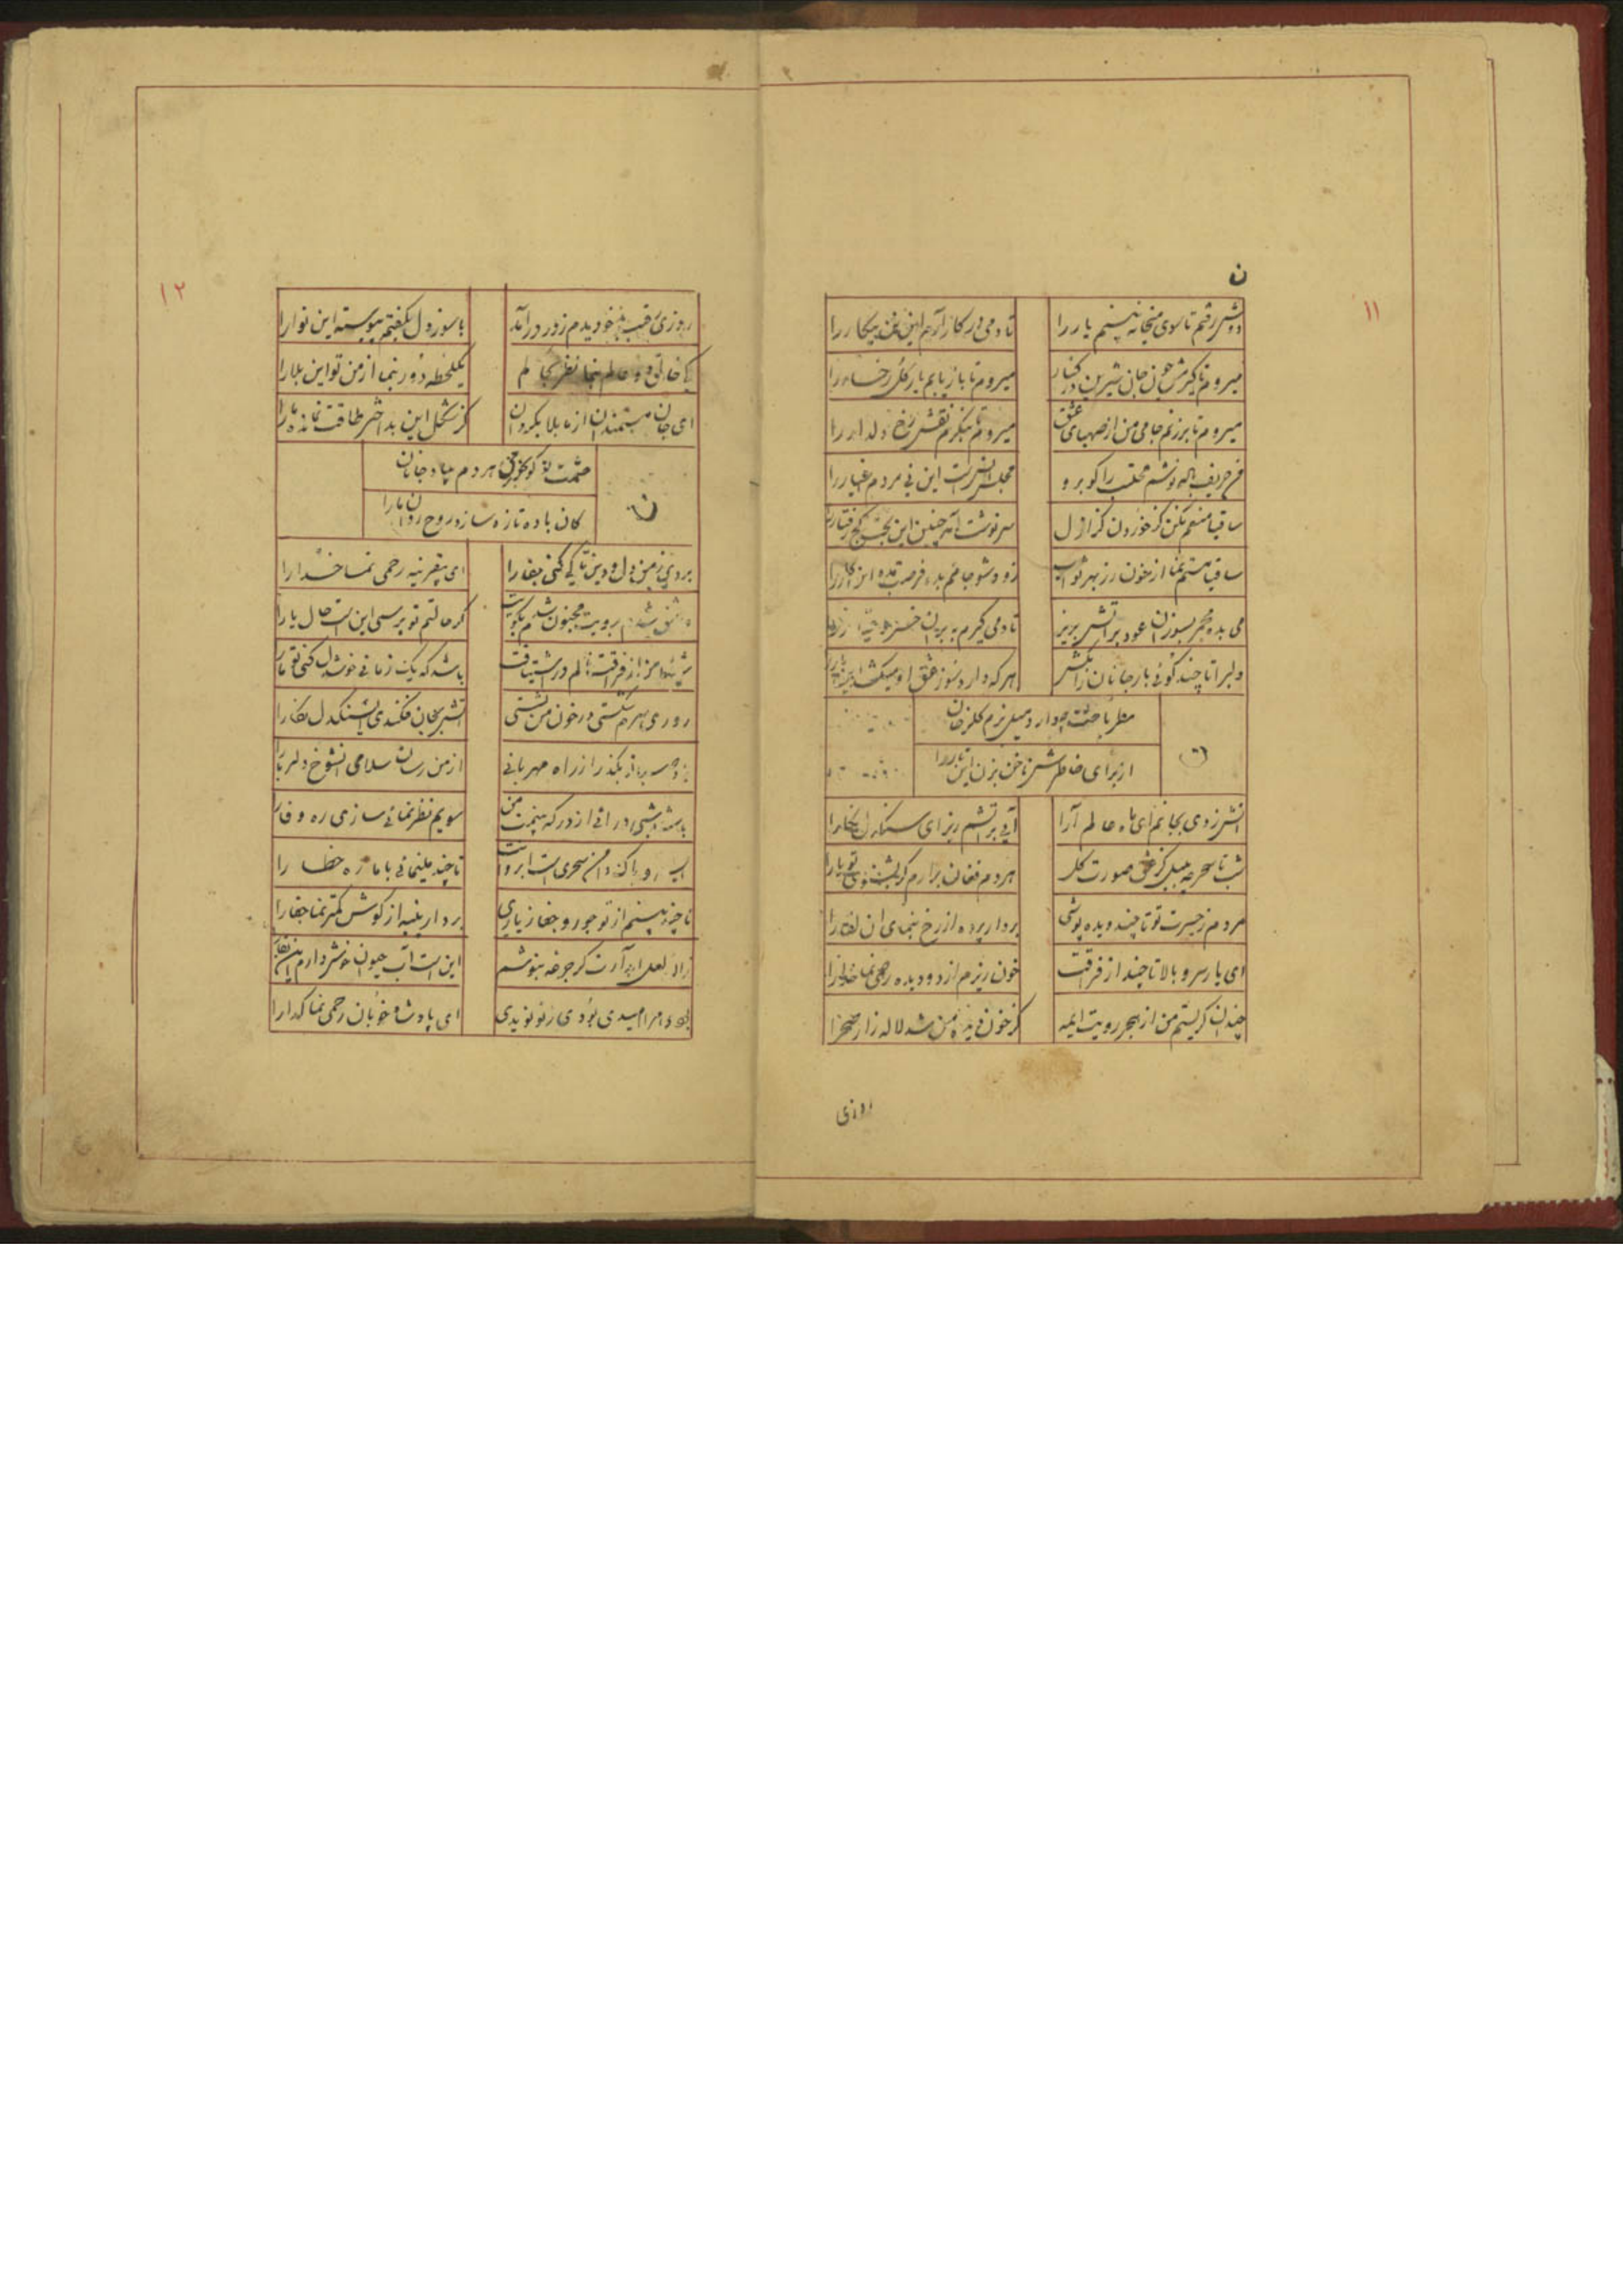 ۱۱
ن
دوش رفتم تا سوی میخانه بینم یار را تا دمی در کار آرم این تن بیکار را
میروم تا گیرمش چون جان شیرین در کنار میروم تا باز یابم یار گل رخسار را
میروم تا برزنم جامی من از صهبای عشق میروم تا بنگرم نقش رخ دلدار را
من حریف باده نوشم محتسب را گو برو مجلس انس است این نی مردم اغیار را
ساقیا منعم مکن کز خوردن کز ازل سرنوشت آمد چنین این بخت کج رفتار را
ساقیا مستم نما از خون رز بهر ثواب زود شو جامم بده فرصت مده این کار را
می بده مجمر بسوزان عود بر آتش بریز تا دمی گیرم به بر آن خسرو
دلبرا تا چند گوئی بار جانان را مکش هر که دارد سوز عشق او میکشد این بار را
مطربا حشمت چو دارد میل بزم گلرخان
از برای خاطرش ناخن بزن این تار را
آتش زدی بجانم ای ماه عالم آرا آبی بر آتشم ریز ای سنگدل نگارا
شب تا سحر چه بلبل کز عشق صورت گل هر دم فغان برآرم کو بشنوی تو یارا
مردم ز حسرت تو تا چند دیده پوشی بردار پرده از رخ بنمای آن لقا را
ای یار سرو بالا تا چند از فراقت خون ریزم از دو دیده رحمی نما خدا را
چندان گریستم من از هجر رویت ایمه کز خون دیده من شد لاله زار صحرا
روزی
۱۲
روزی رقیب بد خو دیدم ز در درآمد با سوز دل بگفتم پیوسته این نوا را
کی خالق دو عالم بنما نظر بحالم یکلحظه دور بنما از من تو این بلا را
ای جان مستمندان از ما بلا بگردان کز شکل این بد اختر طاقت نمانده ما را
حشمت تو گو بخور می هر دم بیاد جانان
کان باده تازه سازد روح روان ما را
ن
بردی ز من دل و دین تا کی کنی جفا را ای بیقرینه رحمی نما خدا را
عاشق شدم برویت مجنون شدم بکویت گر حالتم تو پرسی این است حال یارا
از فرقتت نالم در اشتیاقت باشد که یک زمانی خوشدل کنی تو ما را
در خون من نشستی آتش بجان فکندی ای سنگدل نگارا
بگذر از راه مهربانی از من رسان سلامی آن شوخ دلربا را
باشد شبی درائی از در که بینمت من سویم نظر نمائی سازی ره وفا را
سحری است ابروانت تا چند مینمائی با ما ره خطا را
تا چند بینم از تو جور و جفا ز یاری بردار پنبه از گوش کمتر نما جفا را
زان لعل آبدارت گر جرعه بنوشم این است آب حیوان خوش دارم این بقا را
امیدی بودی ز تو نویدی ای پادشاه خوبان رحمی نما گدا را